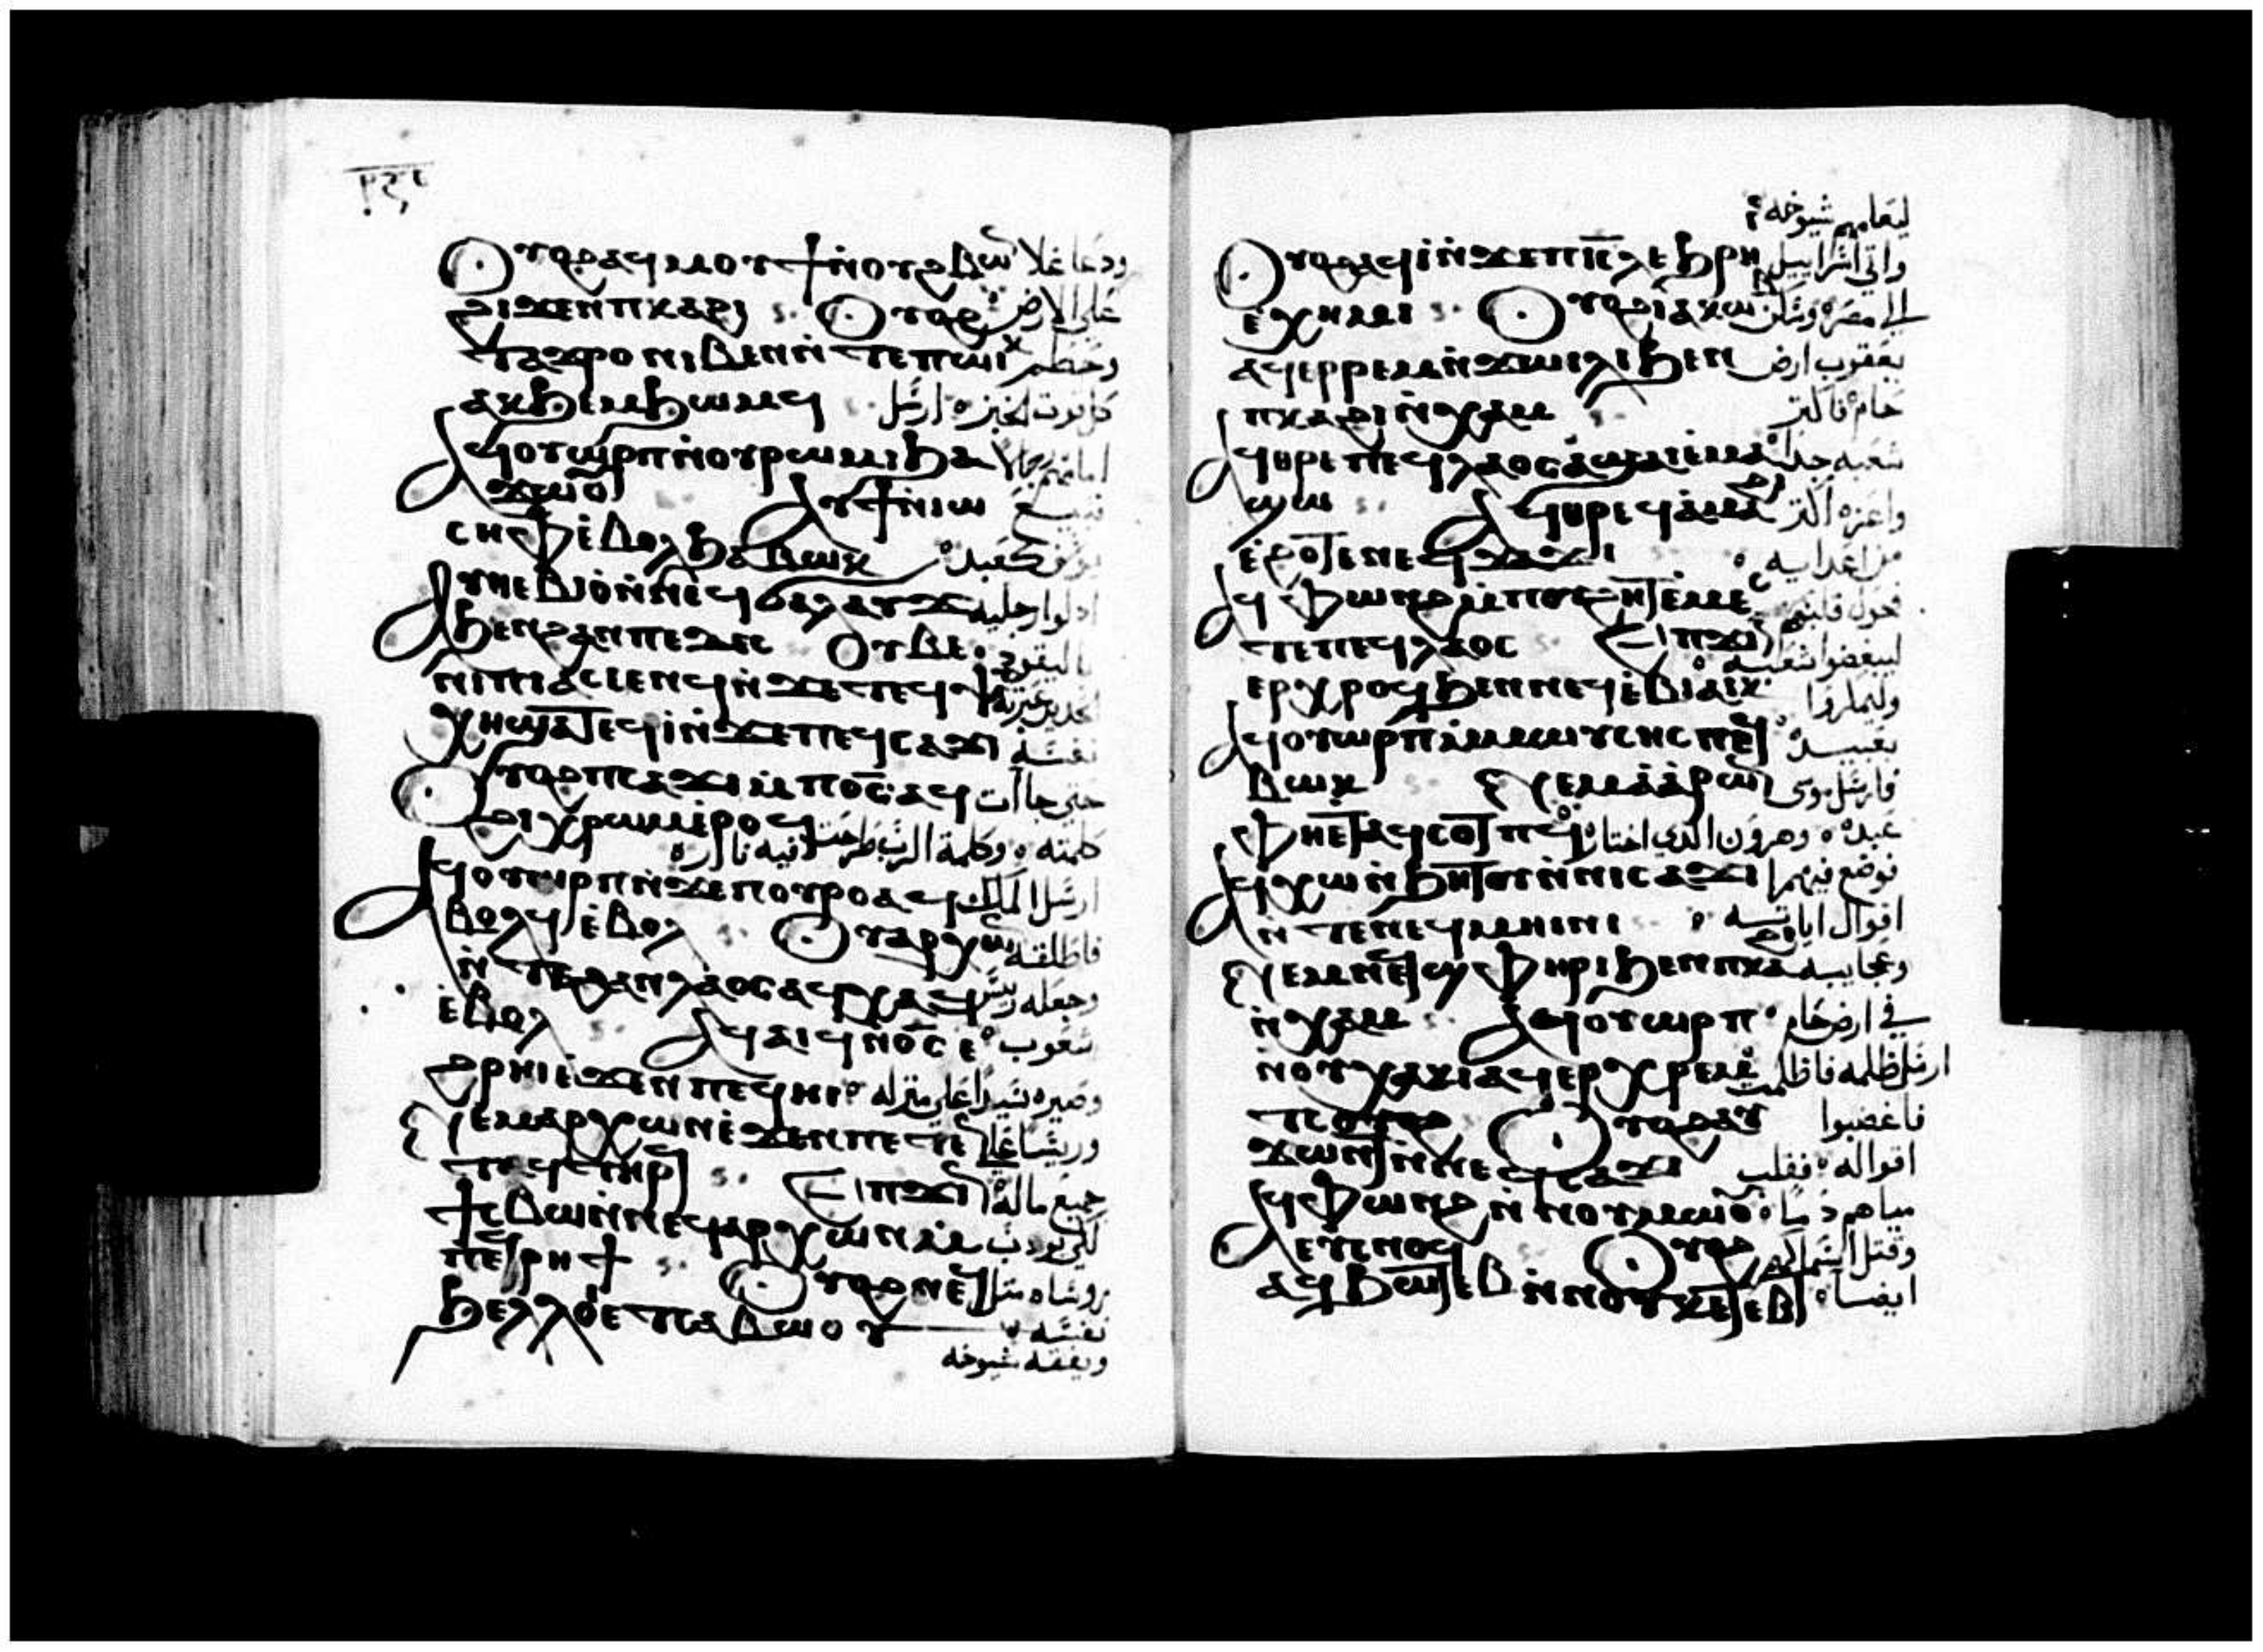 ⲟⲩⲟϩⲁϥⲙⲟⲩϯⲛ̀ⲟⲩϩⲃⲱⲛ ودعا غلا
ϩⲓϫⲉⲛⲡⲕⲁϩⲓ ⲟⲩⲟϩ على الارض
ⲧⲁϫⲣⲟ ⲛⲓⲃⲉⲛⲛ̀ⲧⲉⲡⲱⲓⲕ وحطم
ⲁϥϧⲉⲙϧⲱⲙϥ كل قوت الخبز ارسل
ⲁϥⲟⲩⲱⲣⲡⲛ̀ⲟⲩⲣⲱⲙⲓϧⲁ امامهم رجلا
ϫⲱⲟⲩ ⲁⲩϯⲛⲓⲱ
ⲥⲏⲫⲉ̀ⲃⲟⲗϧⲁⲃⲱⲕ يوسف كعبد
ⲁⲩⲑⲉⲃⲓⲟ̀ⲛ̀ⲛⲉϥϭⲁⲗⲁⲩϫ اذلوا رجليه
ϧⲉⲛϩⲁⲛⲡⲉⲇⲏⲥ ⲟⲩⲃⲉ
ⲛⲓⲡⲓⲁⲥⲓⲉⲛϥⲓⲛ̀ϫⲉⲧⲉϥⲯⲩ
ⲭⲏϣⲁⲧⲉϥⲓ̀ⲛ̀ϫⲉⲡⲉϥⲥⲁϫⲓ نفسه
ⲟⲩⲟϩⲡⲥⲁϫⲓⲙ̀ⲡⲟ̅ⲥ̅ⲁϥ حتى جاات
ϩⲓⲭⲣⲱⲙⲉ̀ⲣⲟϥ كلمته وكلمة الرب طرحت فيه ناره
ⲁϥⲟⲩⲱⲣⲡⲛ̀ϫⲉⲡⲟⲩⲣⲟⲁϥ ارسل الملك
ⲃⲟⲗϥⲉ̀ⲃⲟⲗ ⲟⲩⲁⲣⲭⲱⲛ فاطلقه
ⲛ̀ⲧⲉϩⲁⲛⲗⲁⲟⲥⲁϥⲭⲁϥ وجعله رييس
ⲉ̀ⲃⲟⲗ ⲁϥⲁⲓϥⲛ̀ⲟ̅ⲥ̅ⲉ̀ شعوب
ϩⲣⲏⲓⲉ̀ϫⲉⲛⲡⲉϥⲏⲓ وصيره سيدا على منزله
ⲛⲉⲙⲁⲣⲭⲱⲛⲉ̀ϫⲉⲛⲡⲉⲧⲉ ورييسا على
ⲛⲧⲁϥⲧⲏⲣϥ ⲉⲡϫⲓⲛ جميع ماله
ϯⲥⲃⲱⲛ̀ⲛⲉϥⲁⲣⲭⲱⲛⲙ̀ لكي يودب
ⲡⲉϥⲣⲏϯ ⲟⲩⲟϩⲛⲉϥ روساه مثل
ϧⲉⲗⲗⲟⲉⲧⲥⲁⲃⲱⲟⲩ نفسه
ويفقه شيوخه
ليعلمهم شيوخه
ⲟⲩⲟϩⲁϥⲓ̀ⲛ̀ϫⲉⲡⲓ̅ⲥ̅ⲗⲉ̀ϧⲣⲏ واتي اسراييل
ⲉ̀ⲭⲏⲙⲓ ⲟⲩⲟϩⲓⲁⲕⲱⲃ الى مصر وسكن
ⲁϥⲉⲣⲣⲉⲙⲛ̀ϫⲱⲓⲗⲓϧⲉⲛ يعقوب ارض
ⲡⲕⲁϩⲓⲛ̀ⲭⲁⲙ حام فاكثر
ⲁϥⲑⲣⲉⲡⲉϥⲗⲁⲟⲥⲁ̀ϣⲁⲓⲉ̀ⲙⲁ شعبه جدا
ϣⲱ ⲁϥⲑⲣⲉϥⲁ̀ⲙⲁϩⲓ واعزه اكثر
ⲉ̀ϩⲟⲧⲉⲛⲉϥϫⲁϫⲓ من اعدايه
ⲁϥⲫⲱⲛϩⲙ̀ⲡⲟⲩϩⲏⲧⲉ̀ⲙⲉⲥ فحول قلبهم
ⲧⲉⲡⲉϥⲗⲁⲟⲥ ⲉⲡϫⲓⲛ ليبغضوا شعبه
ⲉⲣⲭⲣⲟϥϧⲉⲛⲛⲉϥⲉ̀ⲃⲓⲁⲓⲕ وليمكروا
ⲁϥⲟⲩⲱⲣⲡⲙ̀ⲙⲱⲩⲥⲏⲥⲡⲉϥ بعبيده
ⲃⲱⲕ ⲛⲉⲙⲁ̀ⲁ̀ⲣⲱⲛ فارسل موسى
ⲫⲏⲉⲧⲁϥⲥⲟⲧⲡϥ عبده وهرون الذي اختاره
ⲁϥⲭⲱⲛ̀ϧⲏⲧⲟⲩⲛ̀ⲛⲓⲥⲁϫⲓ فوضع فيهما
ⲛ̀ⲧⲉⲛⲉϥⲙⲏⲓⲛⲓ اقوال اياته
ⲛⲉⲙⲛⲉϥϣⲫⲏⲣⲓϧⲉⲛⲡⲕⲁϩⲓ وعجايبه
ⲛ̀ⲭⲁⲙ ⲁϥⲟⲩⲱⲣⲡ في ارض حام
ⲛ̀ⲟⲩⲭⲁⲕⲓⲁϥⲉⲣⲭⲣⲉⲙ ارسل ظلمه فاظلمت
ⲧⲥⲟⲩⲟϩ ⲟⲩⲟϩⲁⲩ فاغضبوا
ϫⲱⲛⲧⲛ̀ⲛⲉϥⲥⲁϫⲓ اقواله فقلب
ⲁϥⲫⲱⲛϩⲛ̀ⲛⲟⲩⲙⲱⲟⲩ مياههم دما
ⲉⲩⲥⲛⲟϥ ⲟⲩⲟϩ وقتل اسماكهم
ⲁϥϧⲱⲧⲉⲃⲛ̀ⲛⲟⲩⲕⲉⲧⲉⲃⲧ ايضا